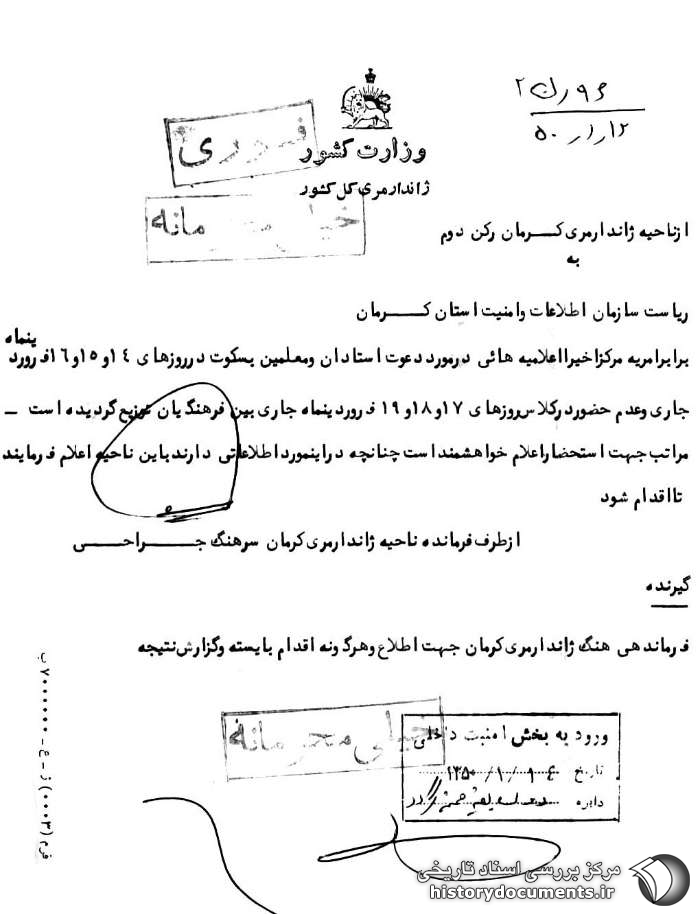 ۵۰/۱/۱۲
فوری
وزارت کشور
ژاندارمری کل کشور
خیلی محرمانه
ازناحیه ژاندارمری کرمان رکن دوم
به
ریاست سازمان اطلاعات وامنیت استان کرمان
برابرامریه مرکزاخیرااعلامیه هائی درمورد دعوت استادان ومعلمین بسکوت درروزهای ۱۴و۱۵و۱۶فروردینماه
جاری وعدم حضوردرکلاس روزهای ۱۷و۱۸و۱۹ فروردینماه جاری بین فرهنگیان توزیع گردیده است –
مراتب جهت استحضاراعلام خواهشمنداست چنانچه دراینمورداطلاعاتی دارندباین ناحیه اعلام فرمایند
تااقدام شود
ازطرف فرمانده ناحیه ژاندارمری کرمان سرهنگ جراحی
گیرنده
فرماندهی هنگ ژاندارمری کرمان جهت اطلاع وهرگونه اقدام بایسته وگزارش نتیجه
خیلی محرمانه
ورود به بخش امنیت داخلی
تاریخ
دایره
مرکز بررسی اسناد تاریخی
historydocuments.ir